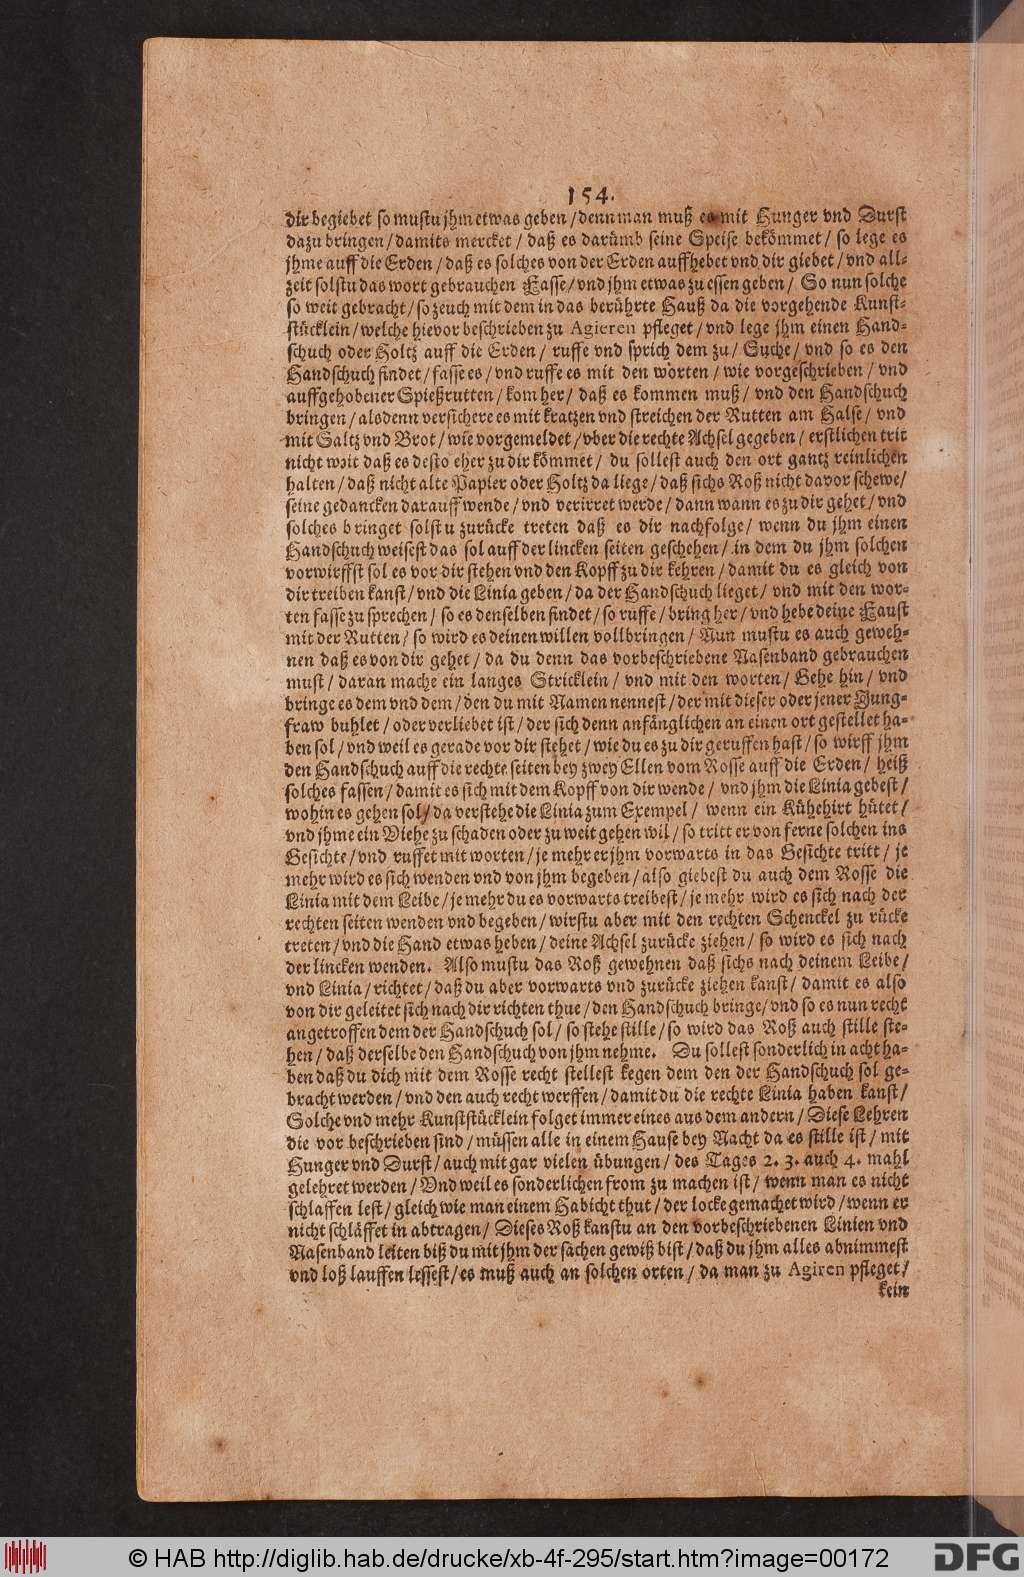 154.
dir begiebet so mustu jhm etwas geben / denn man muß es mit Hunger vnd Durst
dazu bringen / damits mercket / daß es darümb seine Speise bekömmet / so lege es
jhme auff die Erden / daß es solches von der Erden auffhebet vnd dir giebet / vnd all-
zeit solstu das wort gebrauchen Fasse / vnd jhm etwas zu essen geben / So nun solche
so weit gebracht / so zeuch mit dem in das berührte Hauß da die vorgehende Kunst-
stücklein / welche hievor beschrieben zu Agieren pfleget / vnd lege jhm einen Hand-
schuch oder Holtz auff die Erden / ruffe vnd sprich dem zu / Suche / vnd so es den
Handschuch findet / fasse es / vnd ruffe es mit den worten / wie vorgeschrieben / vnd
auffgehobener Spießrutten / kom her / daß es kommen muß / vnd den Handschuch
bringen / alsdenn versichere es mit kratzen vnd streichen der Rutten am Halse / vnd
mit Saltz vnd Brot / wie vorgemeldet / vber die rechte Achsel gegeben / erstlichen trit
nicht weit daß es desto eher zu dir kömmet / du sollest auch den ort gantz reinlichen
halten / daß nicht alte Papier oder Holtz da liege / daß sichs Roß nicht davor schewe /
seine gedancken darauff wende / vnd verirret werde / dann wann es zu dir gehet / vnd
solches bringet solstu zurücke treten daß es dir nachfolge / wenn du jhm einen
Handschuch weisest das sol auff der lincken seiten geschehen / in dem du jhm solchen
vorwirffst sol es vor dir stehen vnd den Kopff zu dir kehren / damit du es gleich von
dir treiben kanst / vnd die Linia geben / da der Handschuch lieget / vnd mit den wor-
ten fasse zu sprechen / so es denselben findet / so ruffe / bring her / vnd hebe deine Faust
mit der Rutten / so wird es deinen willen vollbringen / Nun mustu es auch geweh-
nen daß es von dir gehet / da du denn das vorbeschriebene Nasenband gebrauchen
must / daran mache ein langes Stricklein / vnd mit den worten / Gehe hin / vnd
bringe es dem vnd dem / den du mit Namen nennest / der mit dieser oder jener Jung-
fraw buhlet / oder verliebet ist / der sich denn anfänglichen an einen ort gestellet ha-
ben sol / vnd weil es gerade vor dir stehet / wie du es zu dir geruffen hast / so wirff jhm
den Handschuch auff die rechte seiten bey zwey Ellen vom Rosse auff die Erden / heiß
solches fassen / damit es sich mit dem Kopff von dir wende / vnd jhm die Linia gebest /
wohin es gehen sol / da verstehe die Linia zum Exempel / wenn ein Kühehirt hütet /
vnd jhme ein Viehe zu schaden oder zu weit gehen wil / so tritt er von ferne solchen ins
Gesichte / vnd ruffet mit worten / je mehr er jhm vorwarts in das Gesichte tritt / je
mehr wird es sich wenden vnd von jhm begeben / also giebest du auch dem Rosse die
Linia mit dem Leibe / je mehr du es vorwarts treibest / je mehr wird es sich nach der
rechten seiten wenden vnd begeben / wirstu aber mit den rechten Schenckel zu rücke
treten / vnd die Hand etwas heben / deine Achsel zurücke ziehen / so wird es sich nach
der lincken wenden. Also mustu das Roß gewehnen daß sichs nach deinem Leibe /
vnd Linia / richtet / daß du aber vorwarts vnd zurücke ziehen kanst / damit es also
von dir geleitet sich nach dir richten thue / den Handschuch bringe / vnd so es nun recht
angetroffen dem der Handschuch sol / so stehe stille / so wird das Roß auch stille ste-
hen / daß derselbe den Handschuch von jhm nehme. Du sollest sonderlich in acht ha-
ben daß du dich mit dem Rosse recht stellest kegen dem den der Handschuch sol ge-
bracht werden / vnd den auch recht werffen / damit du die rechte Linia haben kanst /
Solche vnd mehr Kunststücklein folget immer eines aus dem andern / Diese Lehren
die vor beschrieben sind / müssen alle in einem Hause bey Nacht da es stille ist / mit
Hunger vnd Durst / auch mit gar vielen übungen / des Tages 2. 3. auch 4. mahl
gelehret werden / Vnd weil es sonderlichen from zu machen ist / wenn man es nicht
schlaffen lest / gleich wie man einem Habicht thut / der locke gemachet wird / wenn er
nicht schläffet in abtragen / Dieses Roß kanstu an den vorbeschriebenen Linien vnd
Nasenband leiten biß du mit jhm der sachen gewiß bist / daß du jhm alles abnimmest
vnd loß lauffen lessest / es muß auch an solchen orten / da man zu Agiren pfleget /
kein
© HAB http://diglib.hab.de/drucke/xb-4f-295/start.htm?image=00172
DFG